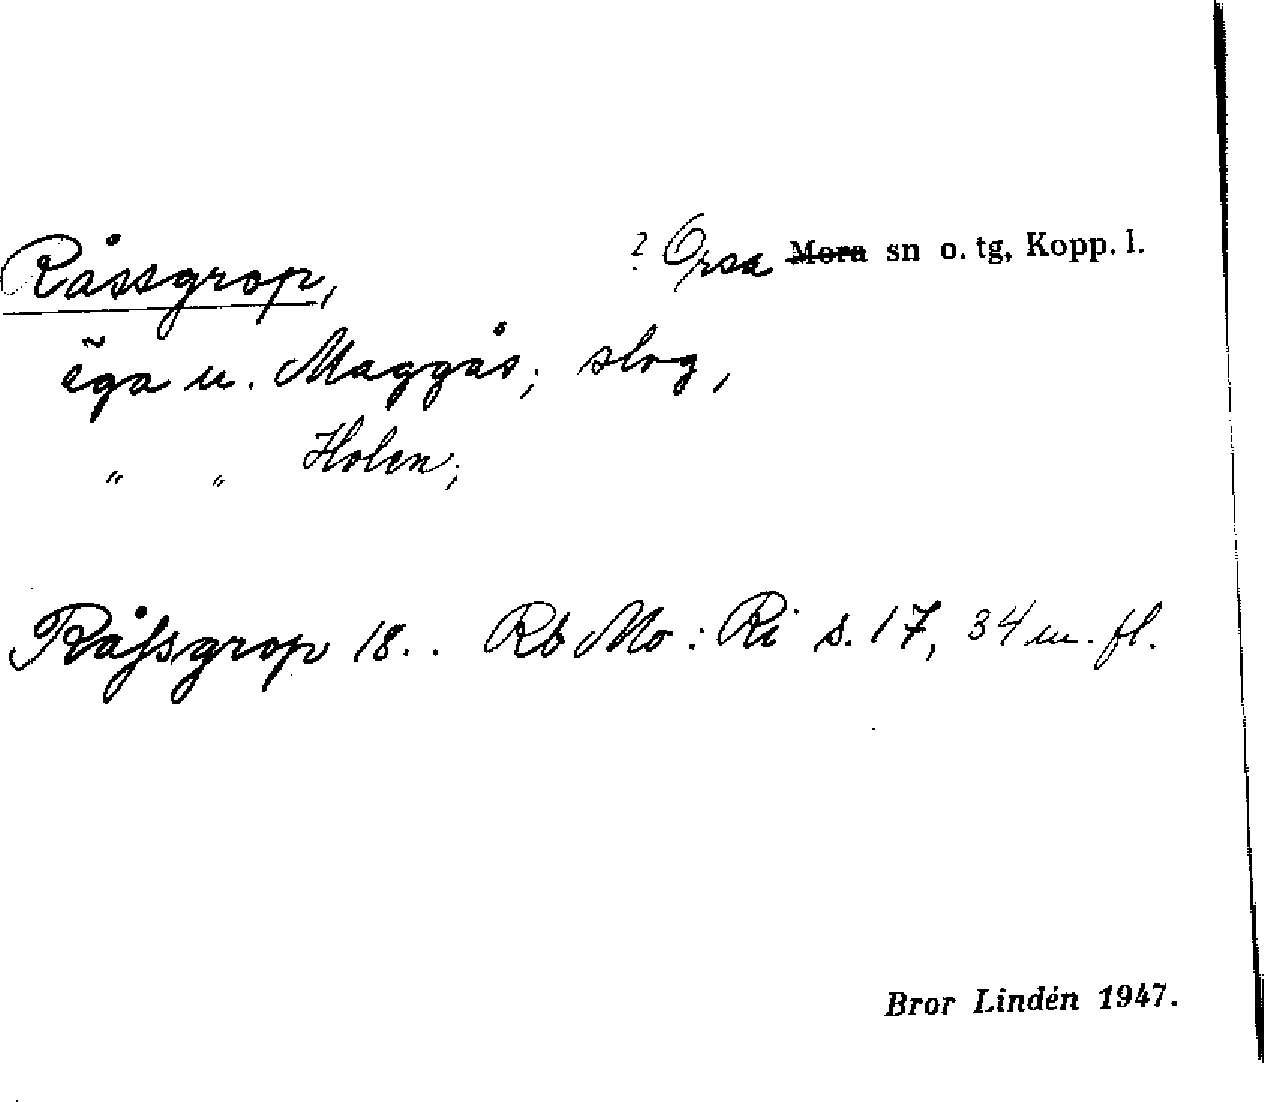 Råssgrop, ? Orsa Mora sn o. tg, Kopp. l.
ẽga u. Maggås; slog,
„ „ Holen;
Råssgrop 18.. Rb Mo: Ri s. 17, 34 m. fl.
Bror Lindén 1947.